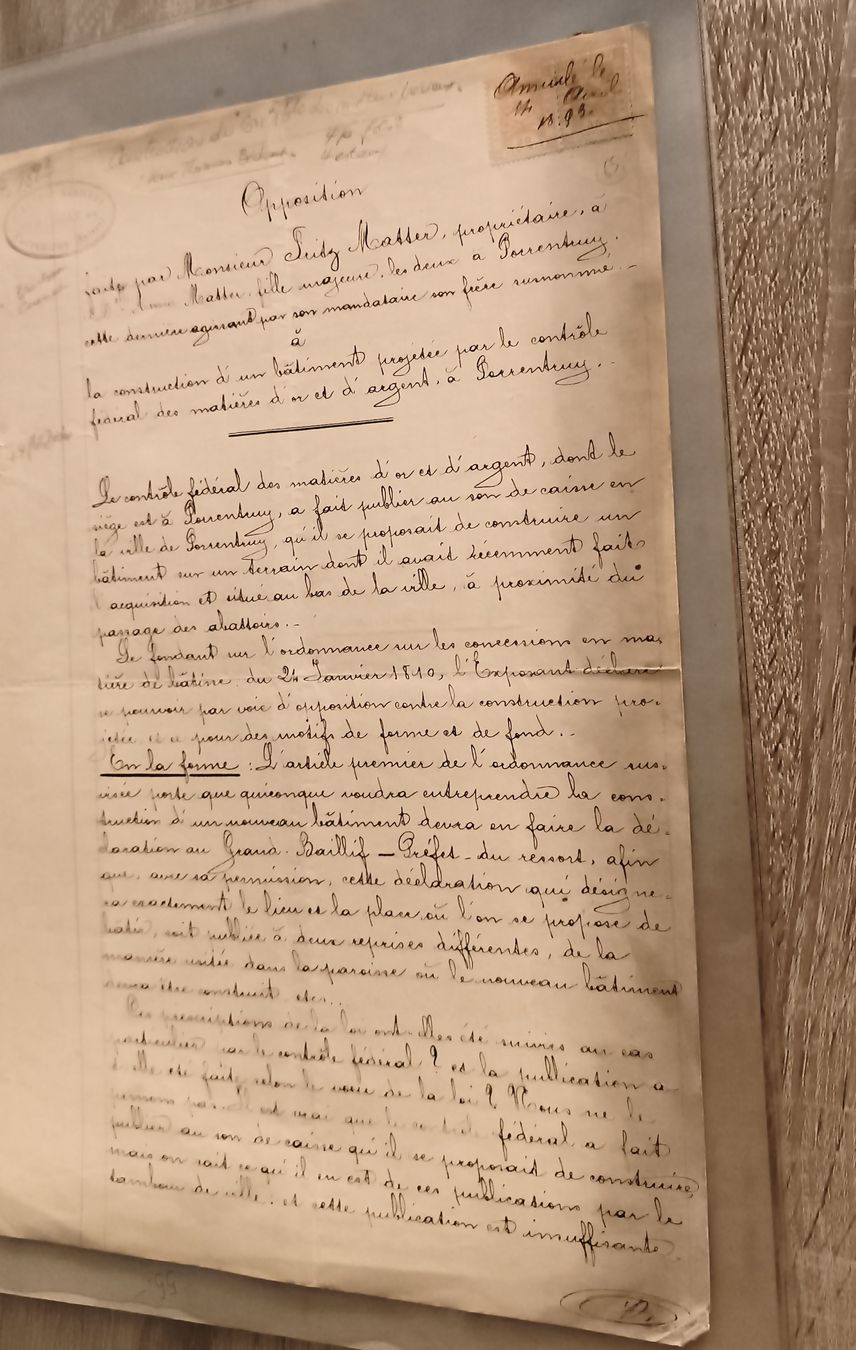 Annulé le
14 Avril
1893.
Opposition
faite par Monsieur Fritz Matter, propriétaire, à
Matter, fille majeure, les deux à Porrentruy.
cette dernière agissant par son mandataire son frère surnommé.-
à
la construction d'un bâtiment projetée par le contrôle
fédéral des matières d'or et d'argent, à Porrentruy.-
Le contrôle fédéral des matières d'or et d'argent, dont le
siège est à Porrentruy, a fait publier au son de caisse en
la ville de Porrentruy, qu'il se proposait de construire un
bâtiment sur un terrain dont il avait récemment fait
l'acquisition et situé au bas de la ville, à proximité du
passage des abattoirs.-
Se fondant sur l'ordonnance sur les concessions en ma-
tière de bâtisse, du 24 Janvier 1810, l'Exposant déclare
se pourvoir par voie d'opposition contre la construction pro-
jetée et ce pour des motifs de forme et de fond.-
En la forme : L'article premier de l'ordonnance sus-
visée porte que quiconque voudra entreprendre la cons-
truction d'un nouveau bâtiment devra en faire la dé-
claration au Grand-Baillif - Préfet - du ressort, afin
que, avec sa permission, cette déclaration qui désigne-
ra exactement le lieu et la place où l'on se propose de
bâtir, soit publiée à deux reprises différentes, de la
manière usitée dans la paroisse où le nouveau bâtiment
devra être construit etc...
Ces prescriptions de la loi ont-elles été suivies au cas
particulier par le contrôle fédéral ? et la publication a
t'elle été faite selon le vœu de la loi ? Nous ne le
pensons pas. Il est vrai que le contrôle fédéral a fait
publier au son de caisse qu'il se proposait de construire,
mais on sait ce qu'il en est de ces publications par le
tambour de ville, et cette publication est insuffisante